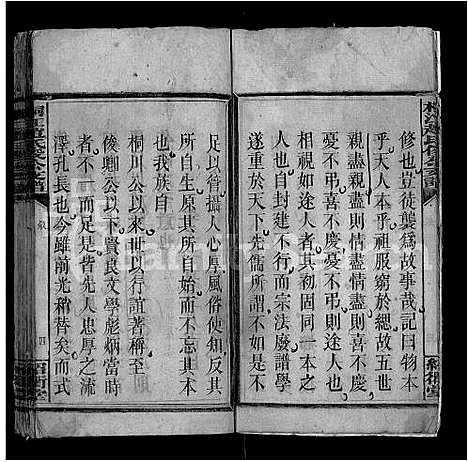 修也豈徒襲為故事哉記曰物本
乎天人本乎祖服窮於緦故五世
親盡親盡則情盡情盡則喜不慶
憂不弔喜不慶憂不弔則途人也
相視如途人者其初固同一本也
然此自封建不行而宗法廢譜學
遂重於天下先儒所謂不如是不
足以管攝人心厚風俗使知反其
所自生原其所自始而不忘其本
也我族自
桐川公以來以行誼著稱至
俊卿公以下賢良文學彪炳當時
不一而足是皆先人忠厚之流
澤孔長也今雖前光稍替矣而式
桐江趙氏俊公支譜
叙
四
紹衡堂